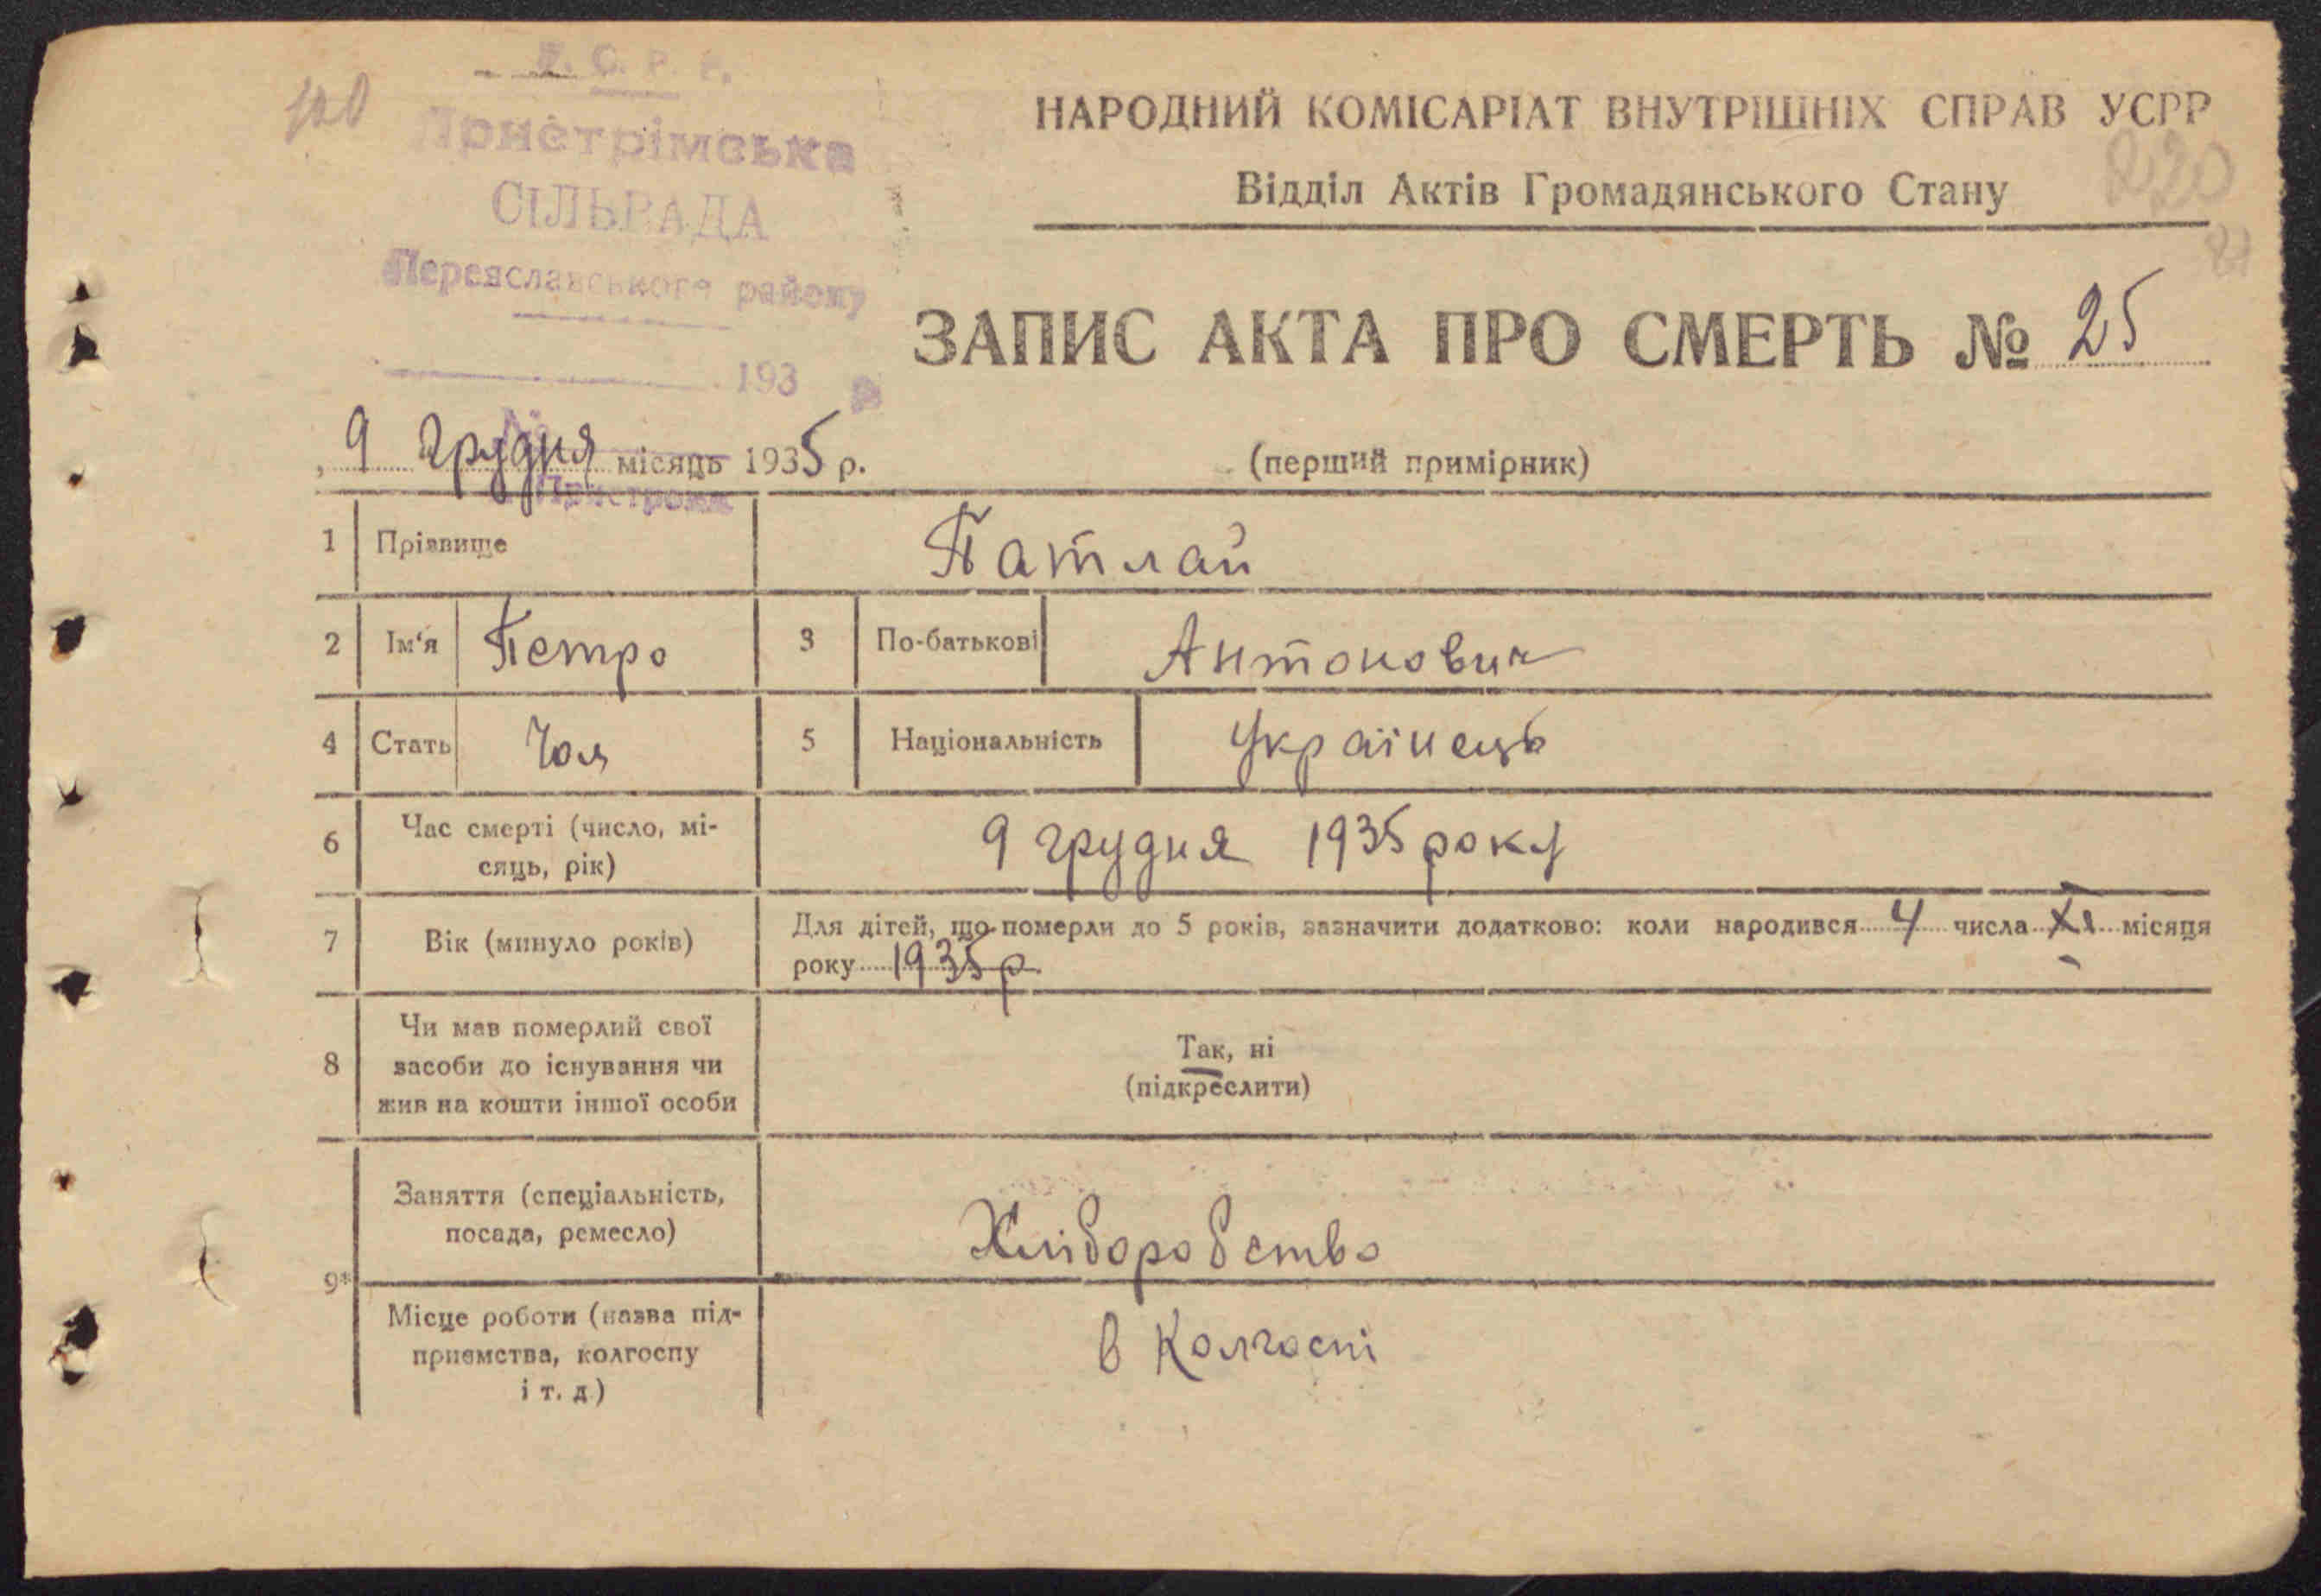 У. С. Р. Р.
Пристрімська
СІЛЬРАДА
Переяславського району
193 р
№
Пристроми
100
НАРОДНИЙ КОМІСАРІАТ ВНУТРІШНІХ СПРАВ УСРР
Відділ Актів Громадянського Стану
230
ЗАПИС АКТА ПРО СМЕРТЬ № 25
9 Грудня місяць 1935 р.
(перший примірник)
1 Прізвище Патлай
2 Ім‘я Петро 3 По-батькові Антонович
4 Стать Чол 5 Національність Українець
6 Час смерті (число, мі-
сяць, рік) 9 грудня 1935 року
7 Вік (минуло років) Для дітей, що померли до 5 років, зазначити додатково: коли народився 4 числа XI місяця
року 1935 р
8 Чи мав померлий свої
засоби до існування чи
жив на кошти іншої особи
Так, ні
(підкреслити)
9* Заняття (спеціальність,
посада, ремесло) Хліборобство
Місце роботи (назва під-
приємства, колгоспу
і т. д) в Колгоспі